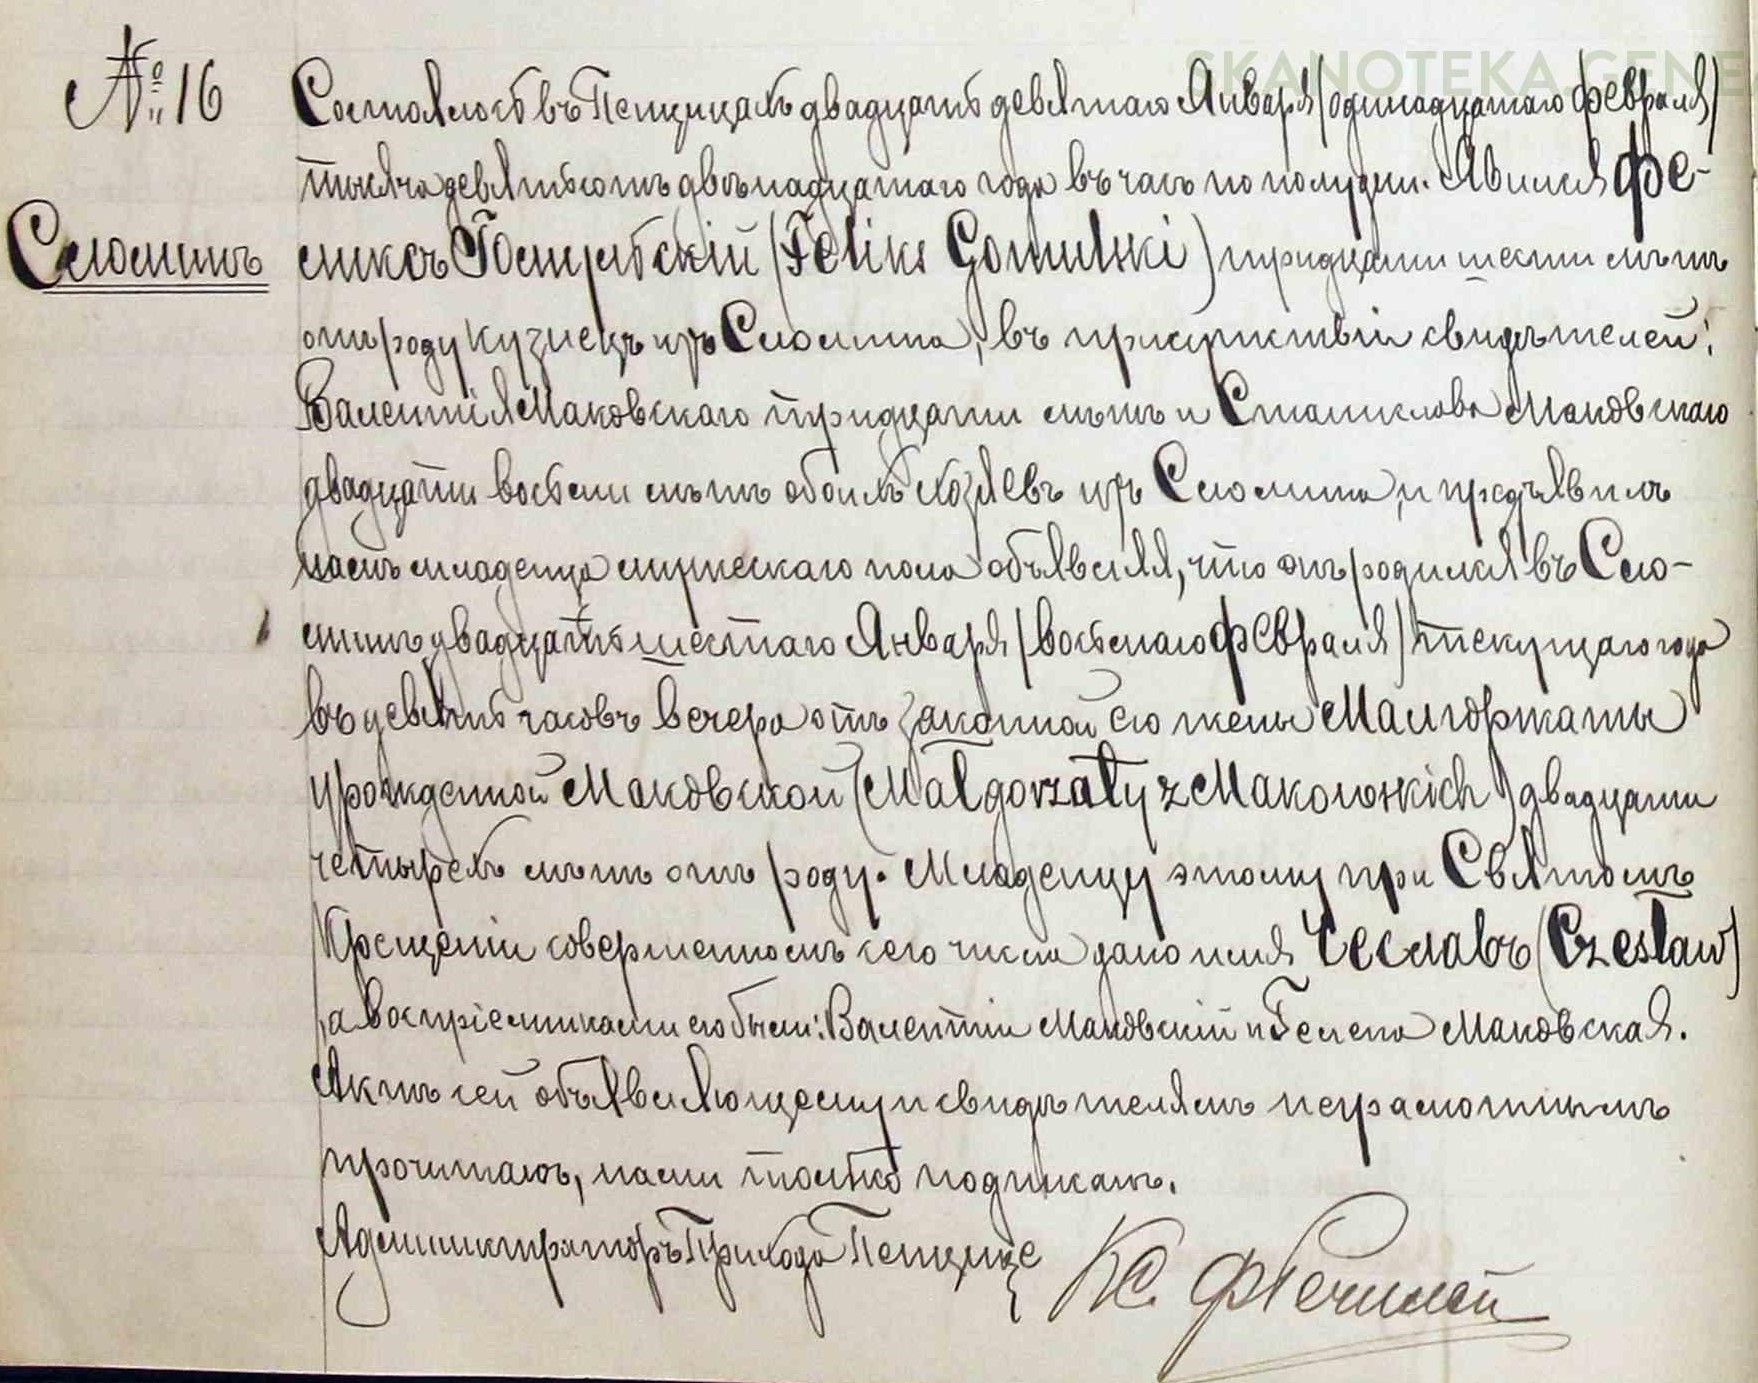 SKANOTEKA.GENE
№ 16
Состоялось въ Пещицахъ двадцать девятаго Января /одинадцатаго февраля/
тысяча девятьсотъ двѣнадцатаго года въ часъ по полудни. Явился Фе-
Сломинъ
ликсъ (Feliks Gomulski) тридцати шести лѣтъ
отъ роду кузнецъ изъ Сломина, въ присутствіи свидѣтелей:
Валентія Маковскаго тридцати лѣтъ и Станислава Маковскаго
двадцати восьми лѣтъ обоихъ хозяевъ изъ Сломина, и предъявилъ
намъ младенца мужескаго пола объявляя, что онъ родился въ Сло-
минѣ двадцать шестаго Января /восьмаго февраля/ текущаго года
въ девять часовъ вечера отъ законной его жены Малгоржаты
урожденной Маковской (Małgorzaty z Makowskich) двадцати
четырехъ лѣтъ отъ роду. Младенцу этому при Святомъ
Крещеніи совершенномъ сего числа дано имя Чеславъ (Czesław)
, а воспріемниками его были: Валентій Маковскій и Гелена Маковская.
Актъ сей объявляющему и свидѣтелямъ неграмотнымъ
прочитанъ, нами только подписанъ.
Администраторъ Прихода Пещице
Кс.